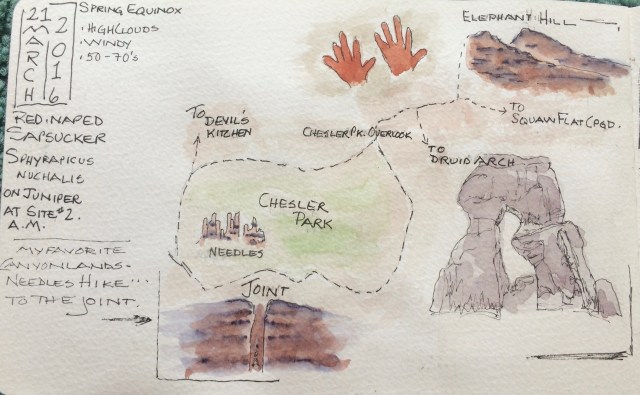 21
MARCH
2016
SPRING EQUINOX
• HIGH CLOUDS
• WINDY
• 50-70's
RED-NAPED
SAPSUCKER
SPHYRAPICUS
NUCHALIS
ON JUNIPER
AT SITE #2.
A.M.
MY FAVORITE
CANYONLANDS-
NEEDLES HIKE...
TO THE JOINT.
ELEPHANT HILL
TO
SQUAW FLAT CPGD.
TO
DEVIL'S
KITCHEN
CHESLER PK. OVERLOOK
TO
DRUID ARCH
CHESLER
PARK
NEEDLES
JOINT